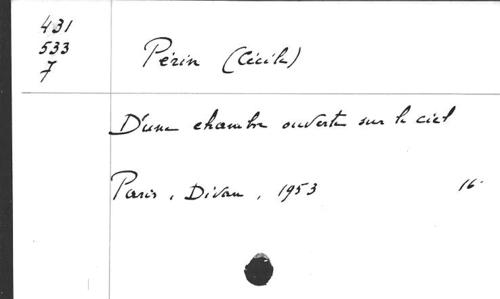 431
533
7
Périn (Cécile)
D'une chambre ouverte sur le ciel
Paris, Divan, 1953 16°